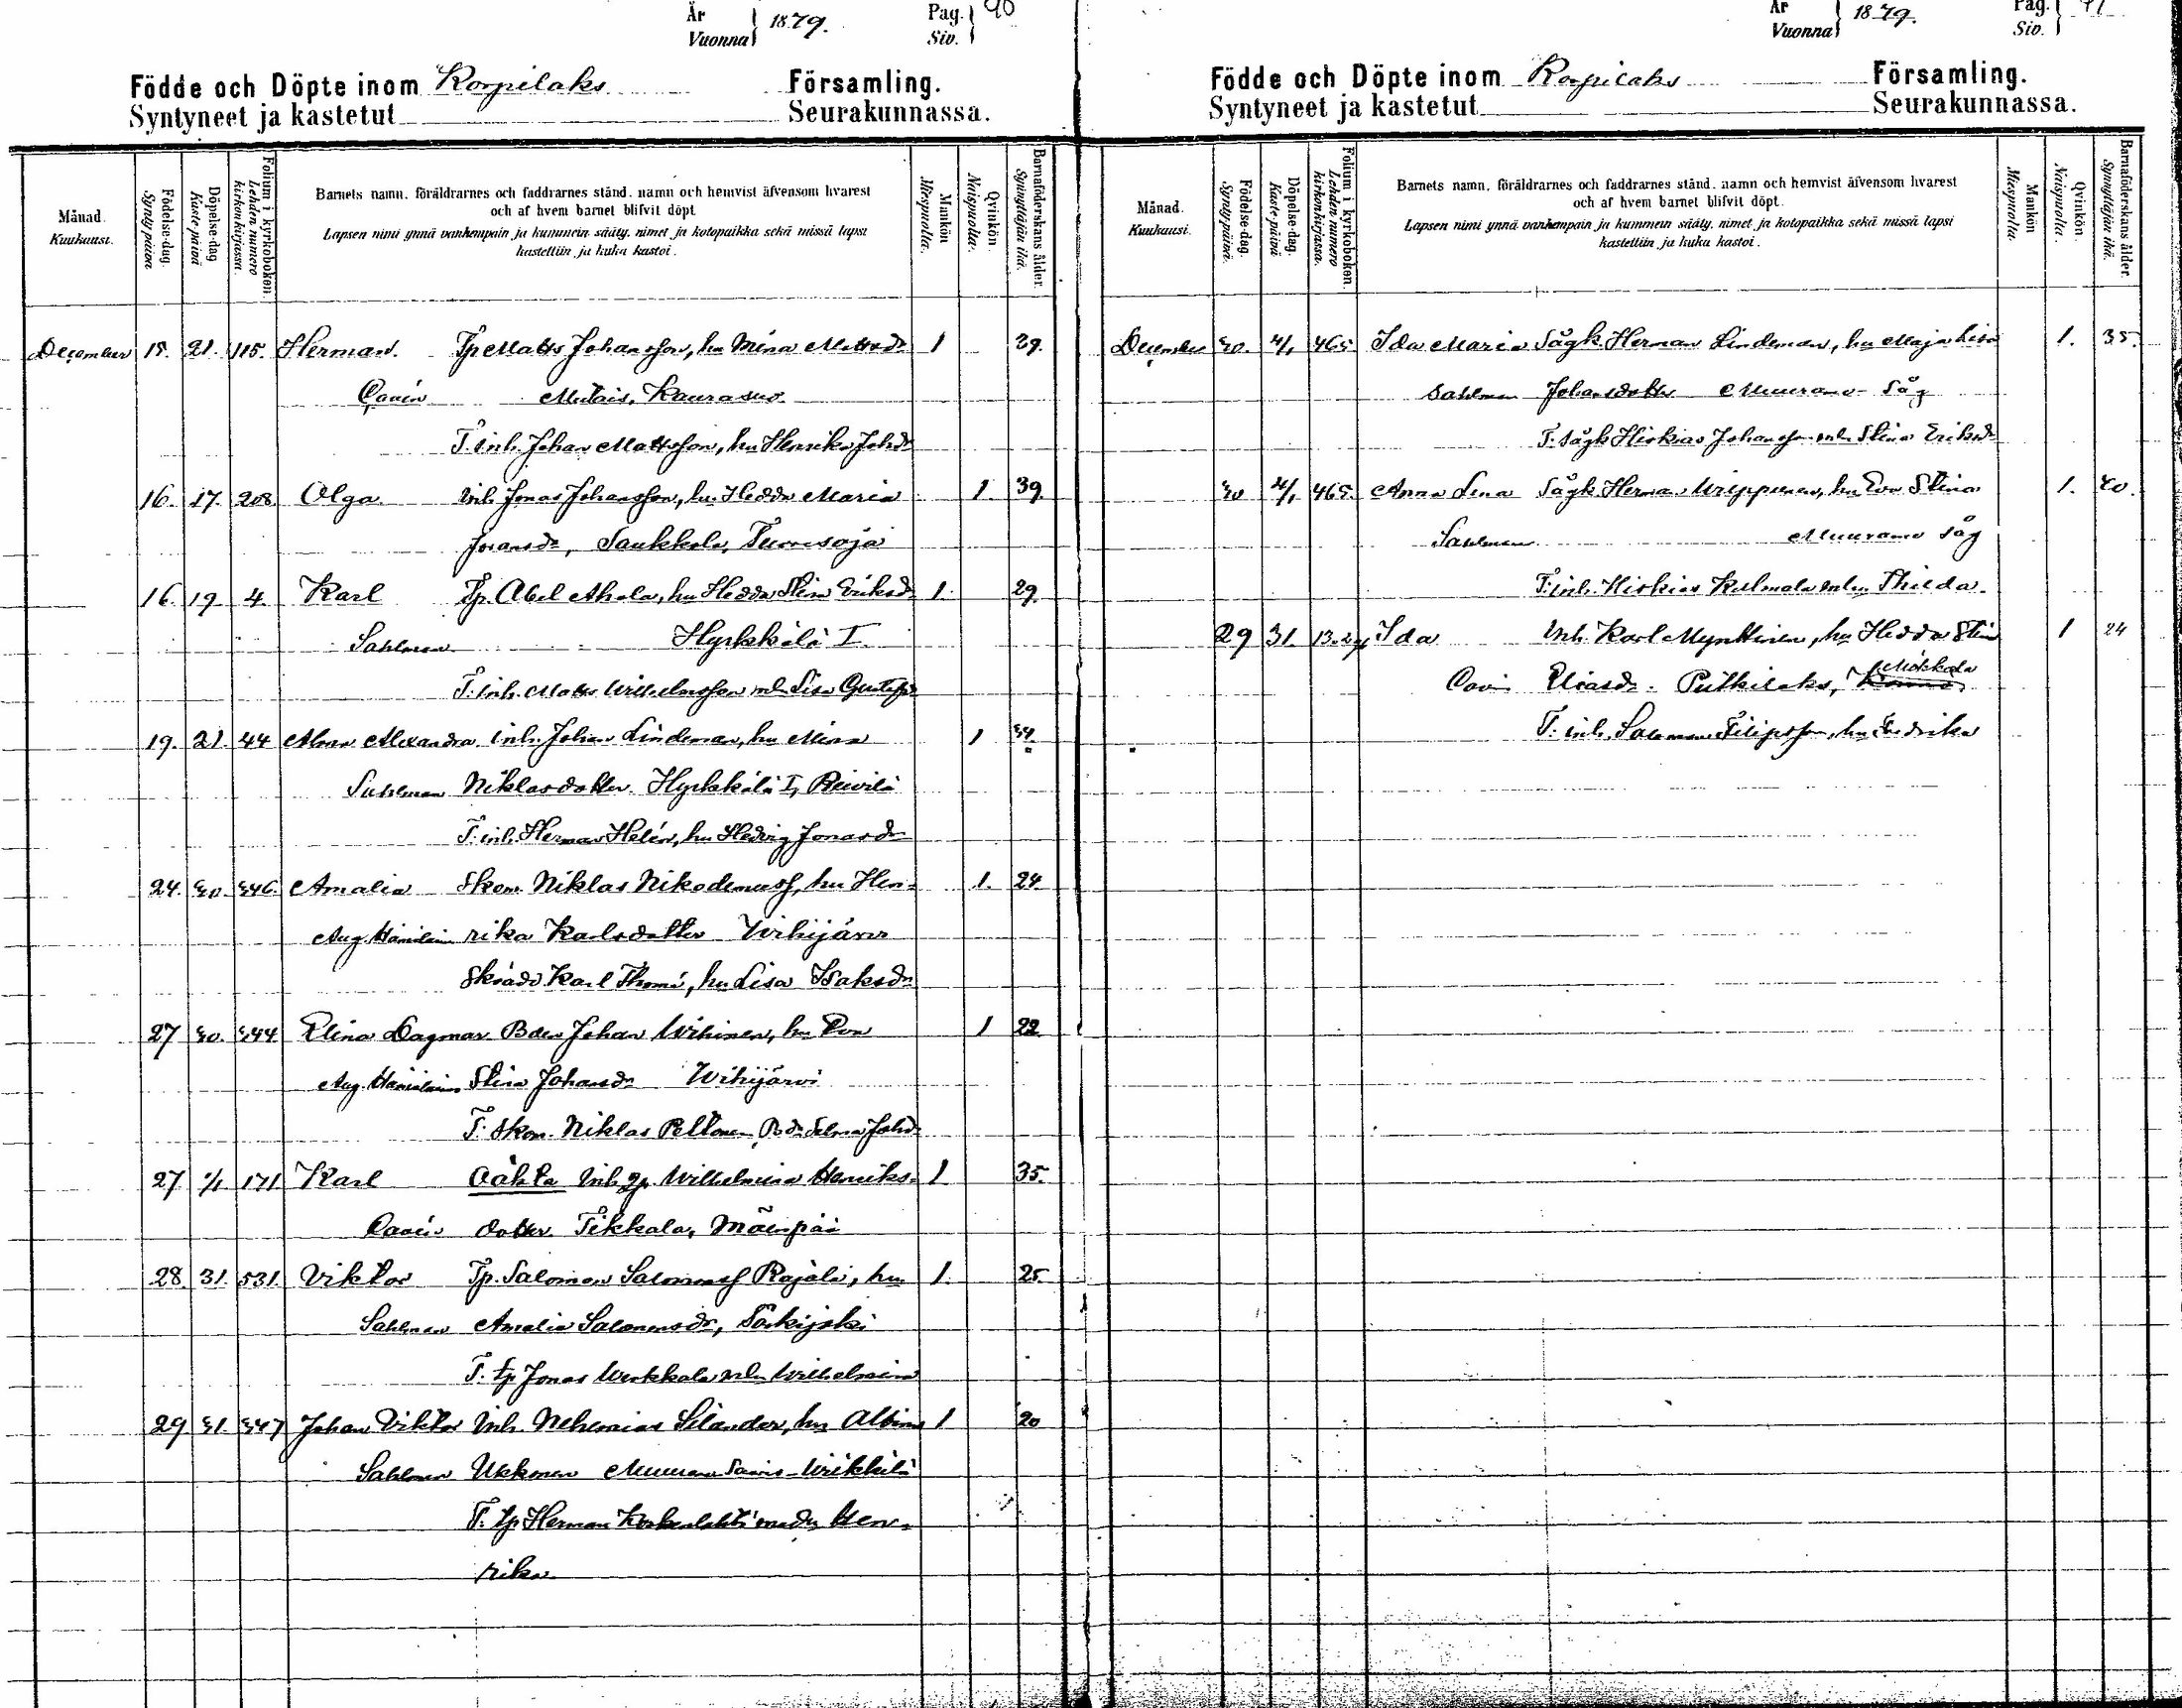 År
Vuonna 1879. Pag. Siv. 90
Födde och Döpte inom Korpilaks Församling.
Syntyneet ja kastetut Seurakunnassa.
Månad. Kuukausi.
Födelse-dag. Synty päivä
Döpelse-dag Kaste-päivä
Folium i kyrkoboken. Lehden numero kirkonkirjassa.
Barnets namn, föräldrarnes och faddrarnes stånd, namn och hemvist äfvensom hvarest
och af hvem barnet blifvit döpt
Lapsen nimi ynnä vanhempain ja kummein sääty, nimet ja kotopaikka sekä missä lapsi
kastettiin ja kuka kastoi.
Mankön Miespuolia.
Qvinkön. Naispuolia.
Barnaföderskans ålder. Synnyttäjän ikä.
December 15. 21. 115. Herman. Tp Matts Johansson, hu Mina Mattsdr 1 39.
Cavén Mutais, Kaurasuo.
T. inh. Johan Mattsson, hu Henrika Johdr
16. 17. 208 Olga Inh. Jonas Johansson, hu Hedda Maria 1. 39.
Jonasdr, Saukkola,
16. 19. 4. Karl Tp. Abel Ahola, hu Hedda Stina Eriksdr 1. 29.
Sahlman Hyrkkälä I.
T. inh. Matts Willhelmsson mh Lisa
19. 21. 44 Alma Alexandra inh. Johan Lindeman, hu Mina 1
Sahlman Niklasdotter Hyrkkälä I, Reivilä
T. inh. Herman Helén, hu Hedvig Jonasdr
24. 30. 346. Amalia Skom. Niklas Nikodemuss, hu Hen- 1. 24.
Aug. Hämäläinen rika Karlsdotter Wihijärvi
Skrädd Karl Thomé, hu Lisa Isaksdr
27 30. 344 Elina Dagmar Bden Johan Wihinen, hu Eva 1 22
Aug. Hämäläinen Stina Johansdr Wihijärvi
T. Skom. Niklas Peltonen, Bdr Selma Johdr
27. 1/1 171 Karl Oäkta Inh. Wilhelmina Henriks- 1 35.
Cavén dotter Tikkala, Mäenpää
28. 31. 531. Viktor Tp. Salomon Salomonss Rajala, hu 1. 25.
Sahlman Amalia Salomonsdr, Särkijoki
T. tp Jonas Werkkala mh Wilhelmina
29 31. 347 Johan Viktor Inh. Nehemias Silander, hu Albina 1 20
Sahlman Ukkonen Muurame
T. tp Herman Hen-
rika
År
Vuonna 1879. Pag. Siv. 91
Födde och Döpte inom Korpilaks Församling.
Syntyneet ja kastetut Seurakunnassa.
Månad. Kuukausi.
Födelse-dag. Synty-päivä.
Döpelse-dag. Kaste-päivä
Folium i kyrkoboken. Lehden numero kirkonkirjassa.
Barnets namn, föräldrarnes och faddrarnes stånd, namn och hemvist äfvensom hvarest
och af hvem barnet blifvit döpt.
Lapsen nimi ynnä vanhempain ja kummein sääty, nimet ja kotopaikka sekä missä lapsi
kastettiin ja kuka kastoi.
Mankön Miespuolia.
Qvinkön. Naispuolia.
Barnaföderskans ålder. Synnyttäjän ikä.
December 30. 4/1 465 Ida Maria Sågk. Herman Lindeman, hu Maja Lisa 1. 35.
Sahlman Johansdotter Muurame Såg
T. Sågk Hiskias Johansson mh Stina Eriksdr
30 4/1 465. Anna Lina Sågk. Herman hu Eva Stina 1. 40.
Sahlman Muurame Såg
T. inh. Hiskias Kulmala mh Thilda.
29 31. Ida Inh. Karl Mynttinen, hu Hedda Stina 1 24
Cavén Eliasdr. Putkilaks, Mökkola
T. inh. Salomon Filipsson, hu Fredrika